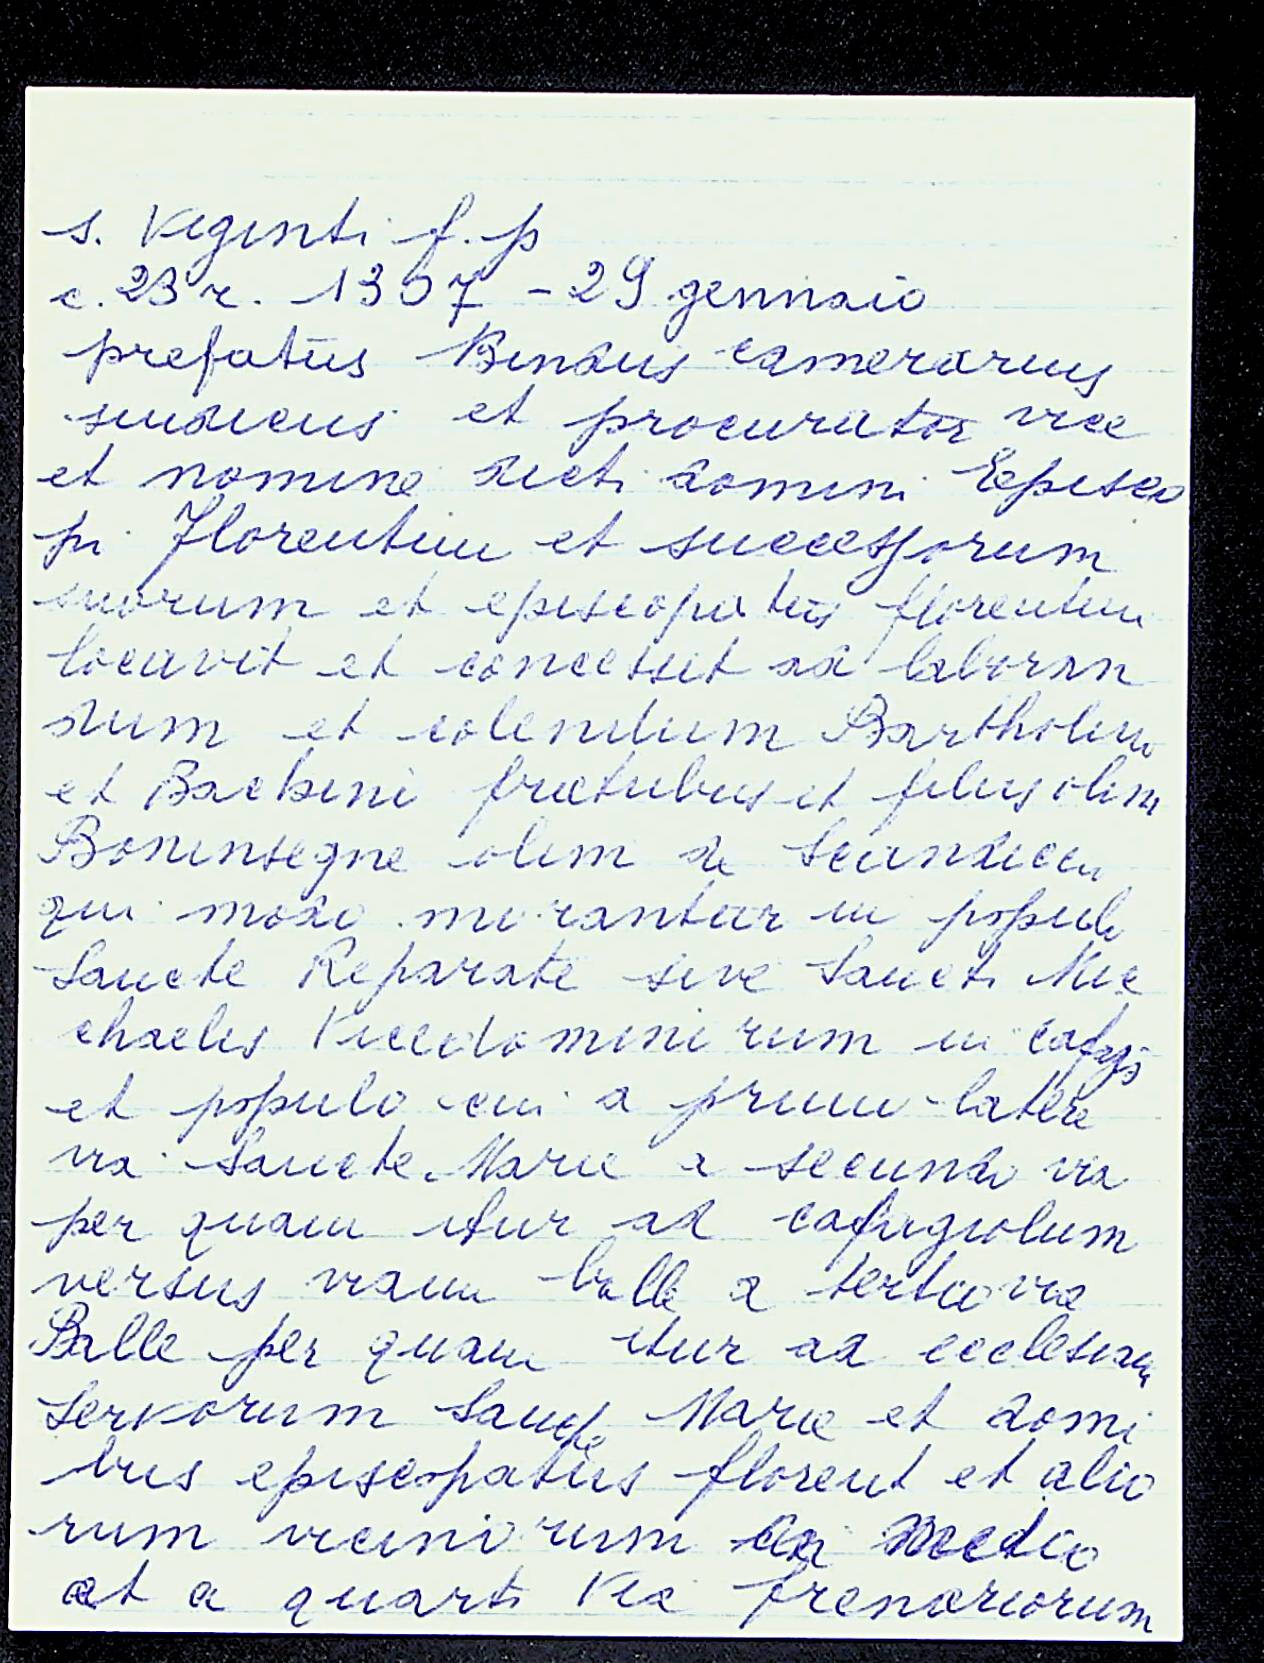 s. Viginti f. p
c. 23 r. 1307 - 29 gennaio
prefatus Bindus camerarius
sindicus et procurator vice
et nomine dicti domini Episco
pi Florentini et successorum
suorum et episcopatus florentini
locavit et concessit ad laboran
dum et colendum Bartholino
et Bachini fratribus et filiis olim
Boninsegne olim de Scandicci
qui modo morantur in populo
Sancte Reparate sive Sancti Mic
chaelis Vicedominorum in cafagio
et populo cui a primo latere
via Sancte Marie a secundo via
per quam itur ad cafagiolum
versus viam balle a tertio via
Balle per quam itur ad ecclesiam
Servorum Sancte Marie et domi
bus episcopatus florent et alio
rum vicinorum in medio
et a quarti via frenariorum